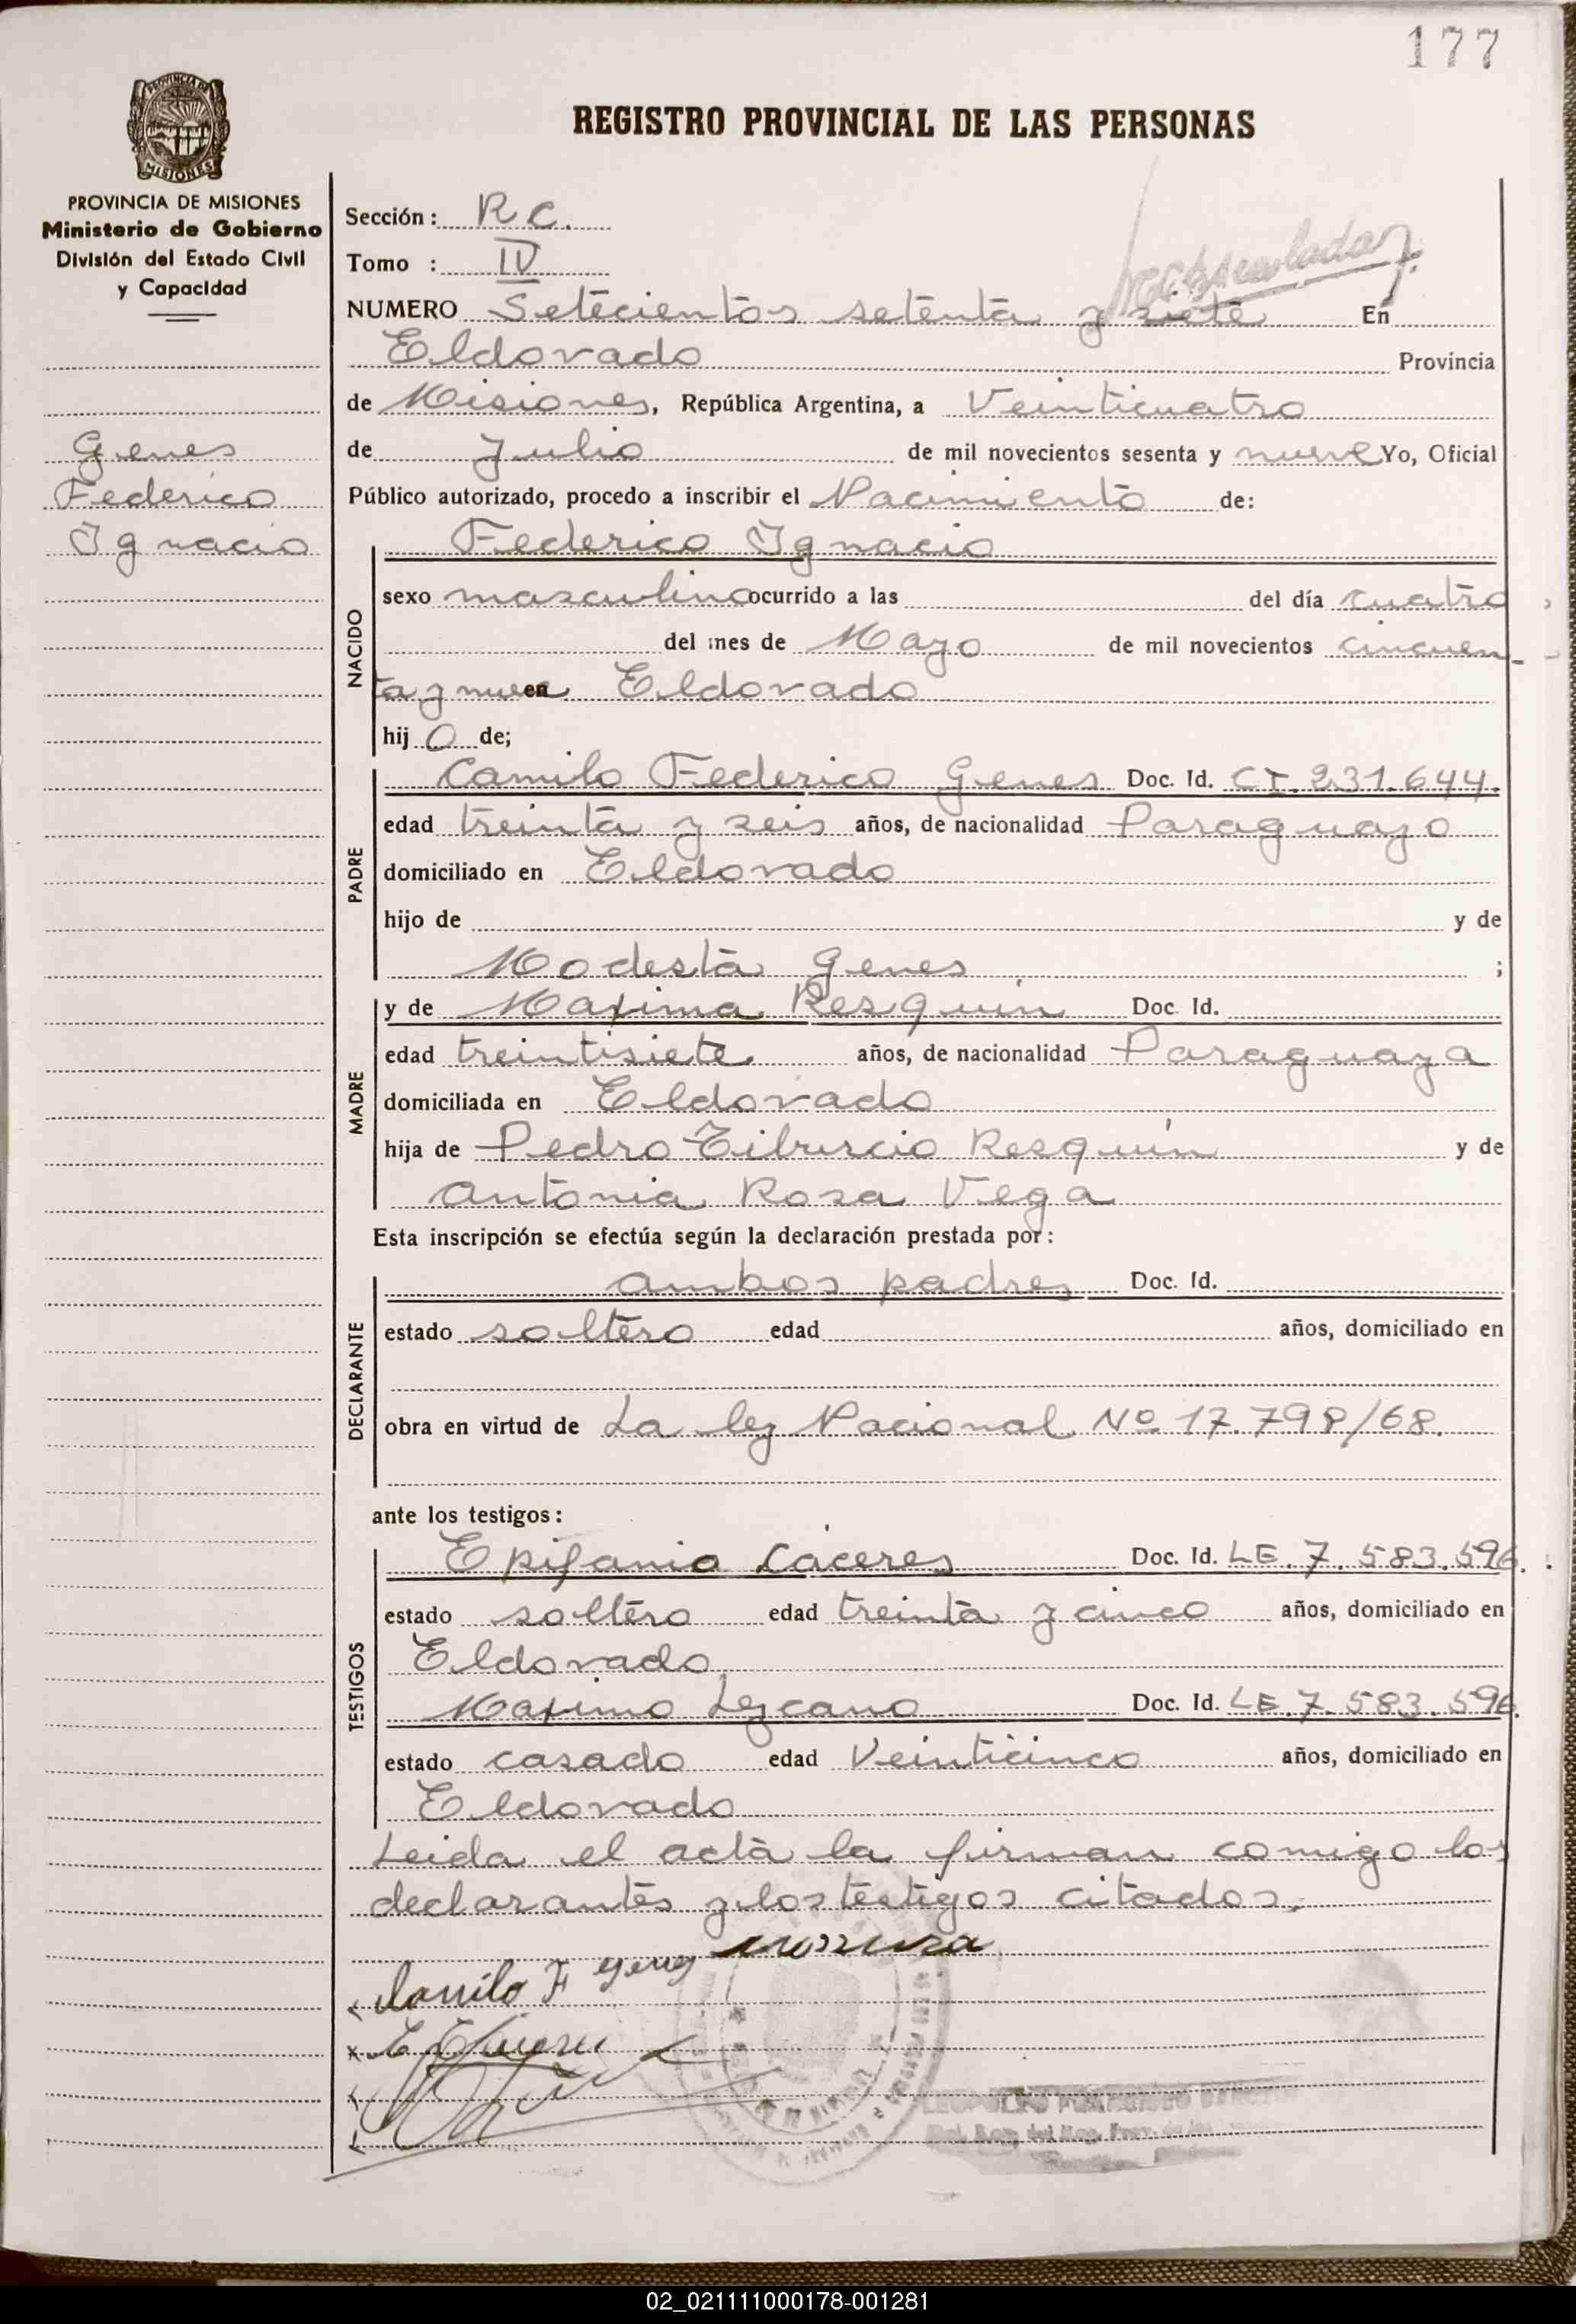 177
PROVINCIA DE
MISIONES
REGISTRO PROVINCIAL DE LAS PERSONAS
PROVINCIA DE MISIONES
Ministerio de Gobierno
División del Estado Civil
y Capacidad
Genes
Federico
Ignacio
Sección: R.C.
Tomo : IV
NUMERO Setecientos setenta y siete En
Eldorado Provincia
de Misiones, República Argentina, a Veinticuatro
de Julio de mil novecientos sesenta y nueve Yo, Oficial
Público autorizado, procedo a inscribir el Nacimiento de:
Federico Ignacio
NACIDO
sexo masculino ocurrido a las del día cuatro
del mes de Mayo de mil novecientos cincuen-
ta y nueve en Eldorado
hijo de;
PADRE
Camilo Federico Genes Doc. Id. CI. 231.644.
edad treinta y seis años, de nacionalidad Paraguayo
domiciliado en Eldorado
hijo de y de
Modesta Genes ;
MADRE
y de Maxima Resquin Doc. Id.
edad treintisiete años, de nacionalidad Paraguaya
domiciliada en Eldorado
hija de Pedro Tiburcio Resquin y de
Antonia Rosa Vega
Esta inscripción se efectúa según la declaración prestada por:
DECLARANTE
ambos padres Doc. Id.
estado soltero edad años, domiciliado en
obra en virtud de La ley Nacional Nº 17.798/68.
ante los testigos:
TESTIGOS
Epifanio Cáceres Doc. Id. LE. 7.583.596.
estado soltero edad treinta y cinco años, domiciliado en
Eldorado
Maximo Lezcano Doc. Id. LE. 7.583.596.
estado casado edad Veinticinco años, domiciliado en
Eldorado
Leida el acta la firman comigo los
declarantes y los testigos citados.
Camilo F Genes
02_021111000178-001281